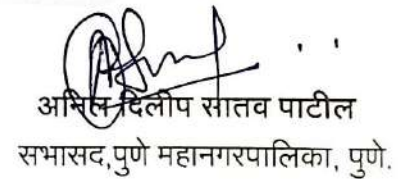 अनिल दिलीप सातव पाटील
सभासद,पुणे महानगरपालिका, पुणे.